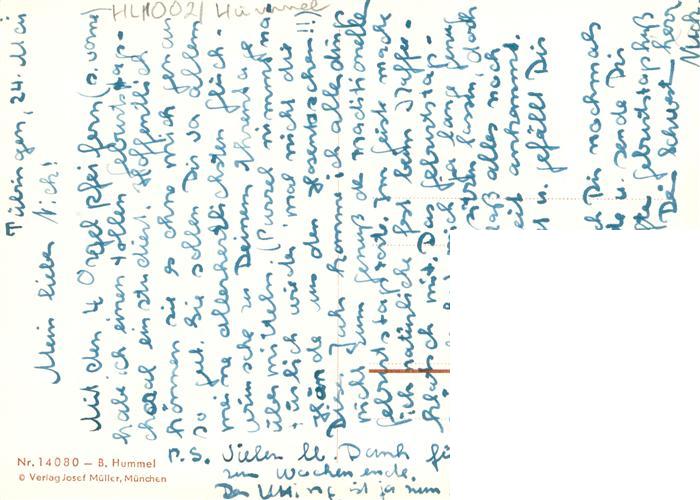 HLM0021 Hummel
Tübingen, 24. Mai
Mein lieber Nick!
Mit den 4 Orgelpfeifern (s. vorne)
habe ich einen tollen Geburtstags-
choral einstudiert. Hoffentlich
können sie es ohne mich genau
so gut. Sie sollen Dir vor allem
meine allerherzlichsten Glück-
wünsche zu Deinem Ehrentage
übermitteln. (Purzel nimmt na-
türlich wieder 'mal nicht die
Hände aus den Hosentaschen!!)
Dies Jahr komme ich allerdings
nicht zum Genuß der traditionellen
Geburtstagstorte. Im Geist mache
ich natürlich fest beim Kaffee-
klatsch mit. Das Geburtstags-
ich ja lange
lassen, doch
daß alles noch
eit ankommt.
t u. gefällt Dir
ch Dir nochmals
te u. sende Dir
Geburtstagskuß
Dein Schwesterherz
P.S. Vielen lb. Dank fü
zum Wochenende.
Der ist ja nun
Nr. 14080 – B. Hummel
© Verlag Josef Müller, München